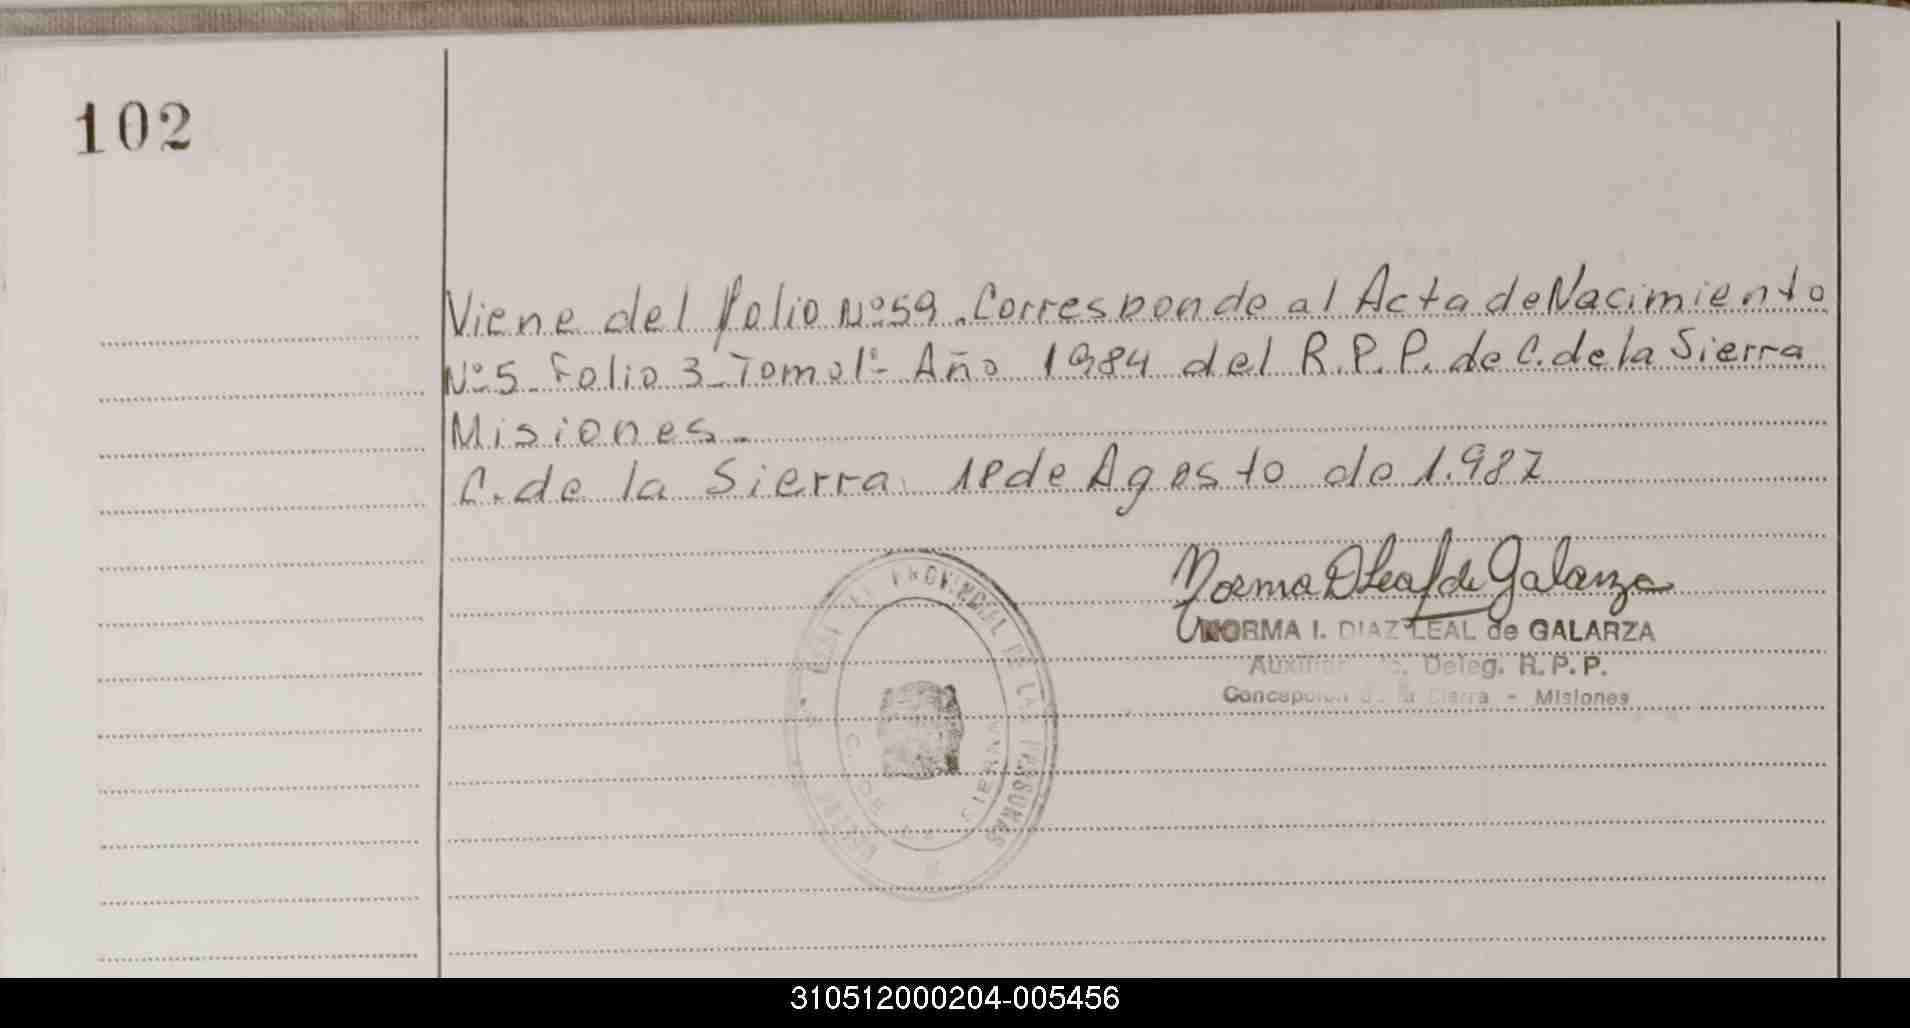 102
Viene del folio Nº 59. Corresponde al Acta de Nacimiento
Nº 5 Folio 3 Tomo 1º Año 1984 del R.P.P. de C. de la Sierra
Misiones.
C. de la Sierra 18 de Agosto de 1.987
Norma D Leal de Galarza
NORMA I. DIAZ LEAL de GALARZA
Auxiliar Deleg. R.P.P.
Concepción de la Sierra - Misiones
PROVINCIAL DE LAS PERSONAS
C. DE LA SIERRA
310512000204-005456